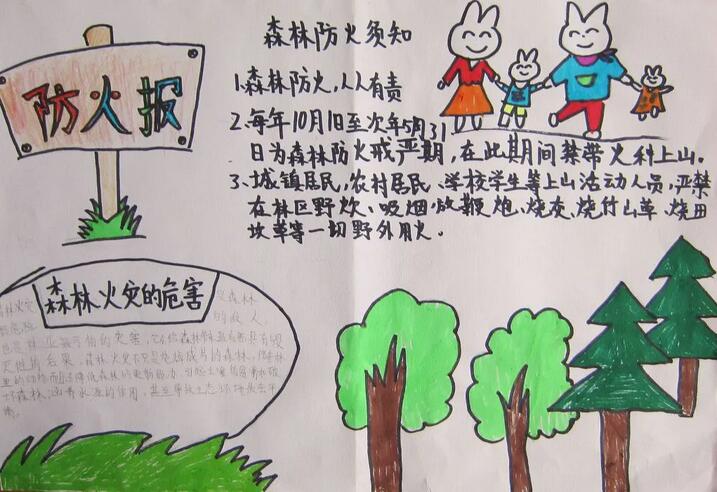 防火报
森林防火须知
1.森林防火,人人有责
2.每年10月1日至次年5月31
日为森林防火戒严期,在此期间禁带火种上山。
3、城镇居民,农村居民、学校学生等上山活动人员,严禁
在林区野炊、吸烟、放鞭炮、烧灰、烧竹山草、烧田
坎草等一切野外用火。
森林火灾的危害
森林火灾 森林
的敌人,
害,它给森林带来
的后果,森林火灾不只是烧毁成片的森林,
里的动物
坏森林涵养水源的作用,甚至导致生态环境失去平
衡。